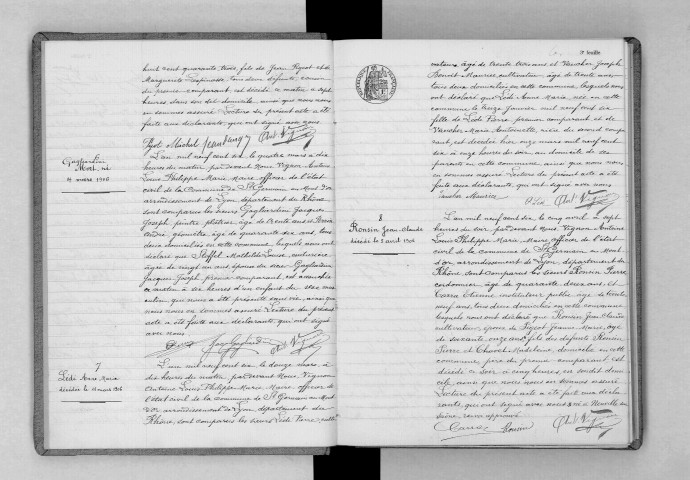 huit cent quarante trois, fils de Jean Pigeot et de
Marguerite Lespinasse tous deux défunts, cousin
du premier comparant, est décédé ce matin à sept
heures dans son dit domicile, ainsi que nous nous
en sommes assuré. Lecture du présent acte a été
faite aux déclarants, qui ont signé avec nous.
Gagliardini
Mort-né
4 mars 1906
L'an mil neuf cent six, le quatre mars à dix
heures du matin, par devant Nous, Vignon Antoine
Louis Philippe Marie, Maire, officier de l'état
civil de la Commune de St Germain au Mont d'Or
arrondissement de Lyon, département du Rhône,
sont comparus les sieurs Gagliardini Jacques
Joseph, peintre plâtrier, âgé de trente ans et
André, géomètre, âgé de quarante six ans, tous
deux domiciliés en cette commune, lesquels nous ont
déclaré que Stoffel Mathilde Louise, couturière,
âgée de vingt un ans épouse du sieur Gagliardini
Jacques Joseph, premier comparant, est accouchée
ce matin à six heures d'un enfant du sexe
masculin, qui nous a été présenté sans vie, ainsi que
nous nous en sommes assuré. Lecture du présent
acte a été faite aux déclarants, qui ont signé
avec nous.
7
Lédé Anne Marie
décédée le 11 mars 1906
L'an mil neuf cent six, le douze mars, à
dix heures du matin, par devant Nous, Vignon
Antoine Louis Philippe Marie, Maire, officier de
l'état civil de la commune de St Germain au Mont
d'Or arrondissement de Lyon, département du
Rhône, sont comparus les sieurs Lédé Pierre,
2e feuille
âgé de trente trois ans et Vancher Joseph
Benoit Maurice, cultivateur, âgé de trente
tous deux domiciliés en cette commune, lesquels nous
ont déclaré que Lédé Anne Marie, née en cette
commune le treize janvier mil neuf cent six
fille de Lédé Pierre, premier comparant et de
Vancher Marie Antoinette, nièce du second comparant
est décédée hier onze mars mil neuf cent
six à onze heures du soir au domicile de ses
parents en cette commune, ainsi que nous nous
en sommes assuré. Lecture du présent acte a été
faite aux déclarants, qui ont signé avec nous
Vancher Maurice
8
Ronsin Jean Claude
décédé le 5 avril 1906
L'an mil neuf cent six, le cinq avril à sept
heures du soir, par devant Nous, Vignon Antoine
Louis Philippe Marie, Maire, officier de l'état
civil de la Commune de St Germain au Mont
d'Or arrondissement de Lyon, département du
Rhône, sont comparus les sieurs Ronsin Pierre
cordonnier, âgé de quarante deux ans, et
Carra Etienne, instituteur public âgé de trente
neuf ans, tous deux domiciliés en cette commune
lesquels nous ont déclaré que Ronsin Jean Claude
cultivateur, époux de Pigeot Jeanne Marie, âgé
de soixante onze ans, fils des défunts Ronsin
Pierre et Chavot Madeleine, domicilié en cette
commune, père du premier comparant est
décédé ce soir à cinq heures, en son dit domicile
ainsi que nous nous en sommes assuré
Lecture du présent acte a été faite aux déclarants,
qui ont signé avec nous
Carra Ronsin